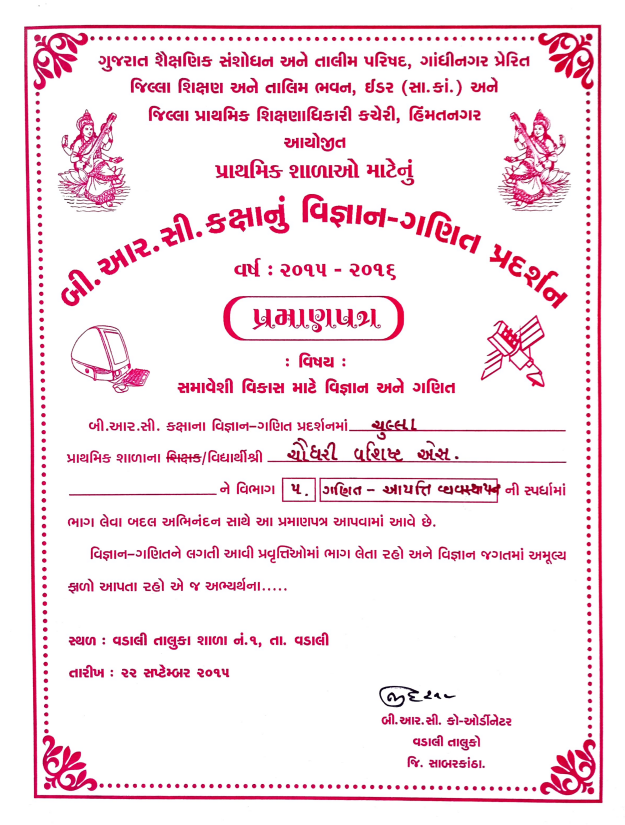 ગુજરાત શૈક્ષણિક સંશોધન અને તાલીમ પરિષદ, ગાંધીનગર પ્રેરિત
જિલ્લા શિક્ષણ અને તાલિમ ભવન, ઈડર (સા.કાં.) અને
જિલ્લા પ્રાથમિક શિક્ષણાધિકારી કચેરી, હિંમતનગર
આયોજીત
પ્રાથમિક શાળાઓ માટેનું
બી.આર.સી.કક્ષાનું વિજ્ઞાન-ગણિત પ્રદર્શન
વર્ષ : ૨૦૧૫ - ૨૦૧૬
પ્રમાણપત્ર
: વિષય :
સમાવેશી વિકાસ માટે વિજ્ઞાન અને ગણિત
બી.આર.સી. કક્ષાના વિજ્ઞાન-ગણિત પ્રદર્શનમાં ચુલ્લા
પ્રાથમિક શાળાના શિક્ષક/વિદ્યાર્થીશ્રી ચૌધરી વશિષ્ટ એસ.
ને વિભાગ ૫. ગણિત - આપત્તિ વ્યવસ્થાપન ની સ્પર્ધામાં
ભાગ લેવા બદલ અભિનંદન સાથે આ પ્રમાણપત્ર આપવામાં આવે છે.
વિજ્ઞાન-ગણિતને લગતી આવી પ્રવૃત્તિઓમાં ભાગ લેતા રહો અને વિજ્ઞાન જગતમાં અમૂલ્ય
ફાળો આપતા રહો એ જ અભ્યર્થના.....
સ્થળ : વડાલી તાલુકા શાળા નં.૧, તા. વડાલી
તારીખ : ૨૨ સપ્ટેમ્બર ૨૦૧૫
બી.આર.સી. કો-ઓર્ડીનેટર
વડાલી તાલુકો
જિ. સાબરકાંઠા.